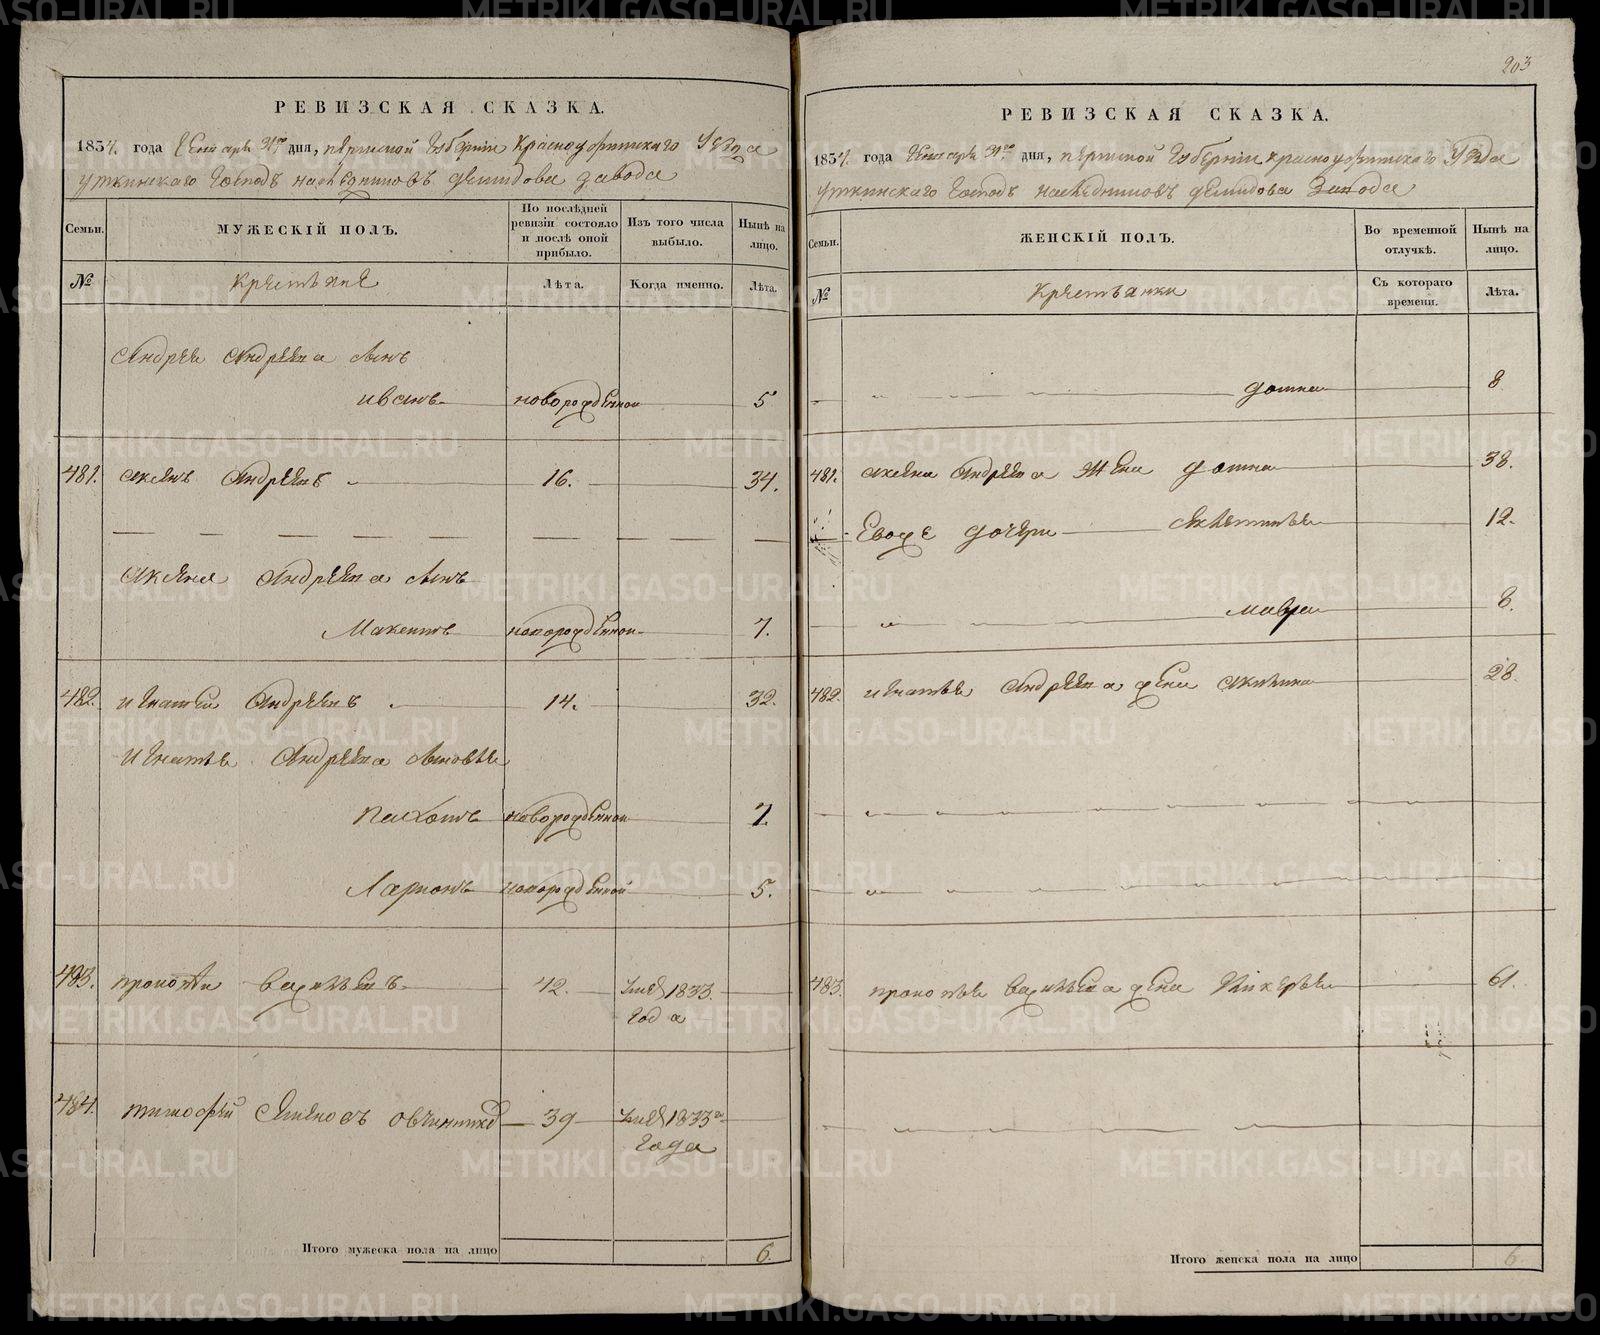 203
РЕВИЗСКАЯ СКАЗКА.
1834. года Генваря 31го дня, пермской Губернiи Красноуфимскаго Уезда
Уткинскаго Господъ наследниковъ демидова завода
Семьи. МУЖЕСКІЙ ПОЛЪ. По послѣдней ревизіи состояло и послѣ оной прибыло. Изъ того числа выбыло. Нынѣ на лицо.
№ Крестьяне Лѣта. Когда именно. Лѣта.
Андрея Андреева сынъ
иванъ новорожденной 5
481. Андреевъ 16. 34.
Андреева сынъ
новорожденной 7.
482. игнатей Андреевъ 14. 32.
Игнатья Андреева сыновья
новорожденной 7.
Ларионъ новорожденной 5.
483. прокопей васильевъ 42. 1833. года
484. тимофей семеновъ овчинниковъ 39 1833го года
Итого мужеска пола на лицо 6.
РЕВИЗСКАЯ СКАЗКА.
1834. года Генваря 31го дня, пермской Губернiи красноуфимскаго Уезда
уткинскаго Господъ наследниковъ демидова Завода
Семьи. ЖЕНСКІЙ ПОЛЪ. Во временной отлучкѣ. Нынѣ на лицо.
№ Крестьянки Съ котораго времени. Лѣта.
домна 8
481. Андреева жена домна 38.
Евоже дочери 12.
мавра 8.
482. игнатья Андреева жена 28.
483. прокопья васильева жена 61.
Итого женска пола на лицо 6
METRIKI.GASO-URAL.RU